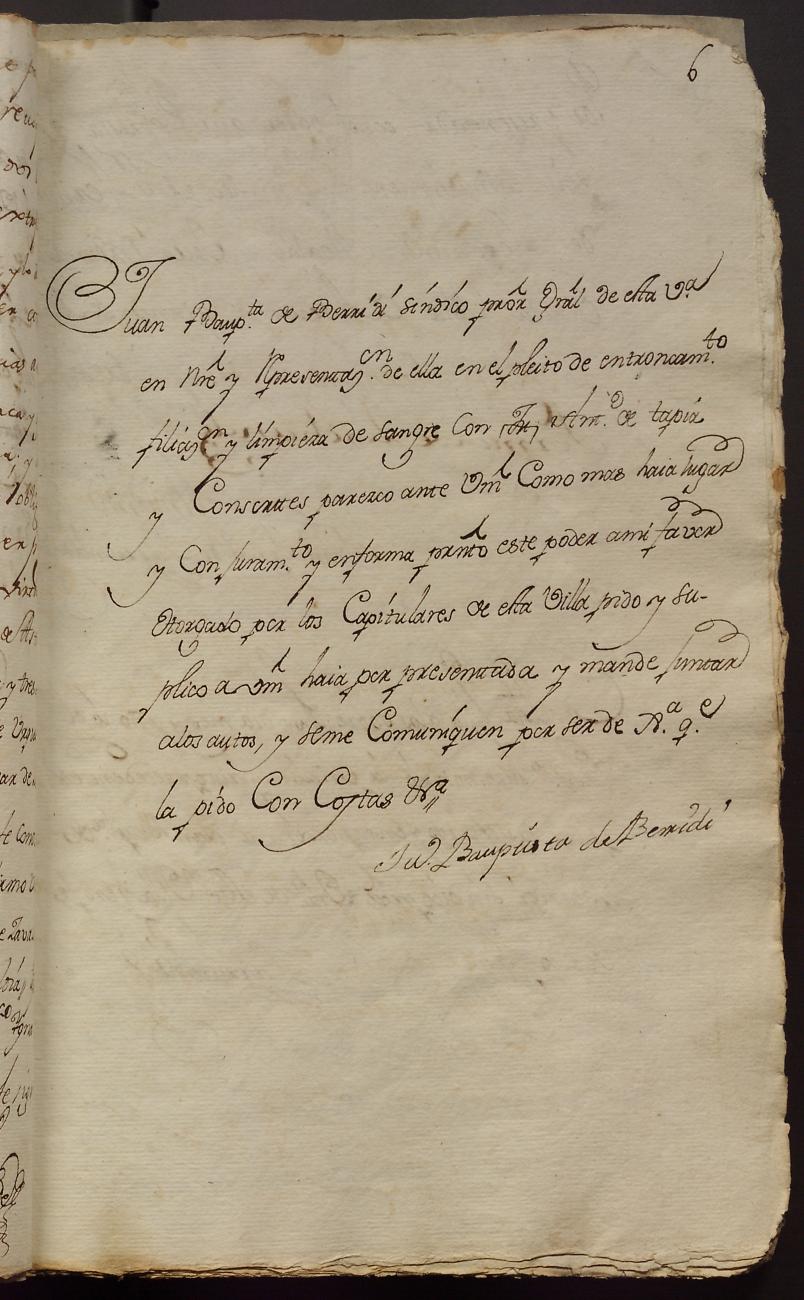 6
Juan Baup.ta de Berridi síndico prõr Grãl de esta V.a
en Nrẽ y Representaz.on de ella en el pleito de entroncam.to
filiaz.on y limpieza de sangre con Ant.o de tapia
y Consortes parezco ante Vm̃ Como mas haia lugar
y Con Juram.to y enforma prnto este poder ami favor
Otorgado por los Capitulares de esta Villa pido y su-
plico a Vm̃ haia por presentada y mande Juntar
alos autos, y seme Comuniquen por ser de Jt.a q.e
la pido Con Costas &a
Ju.o Bauptista de Berridi